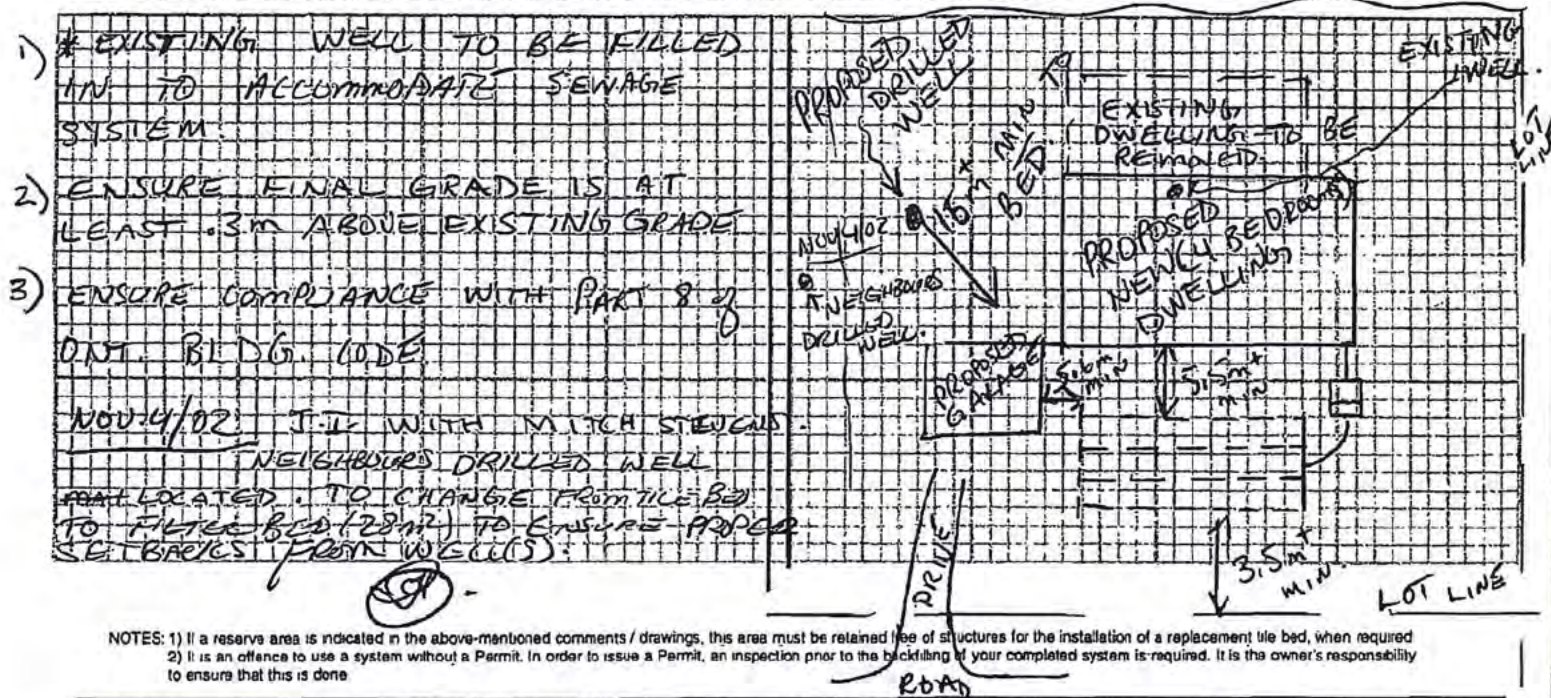 1) * EXISTING WELL TO BE FILLED
IN TO ACCOMMODATE SEWAGE
SYSTEM.
2) ENSURE FINAL GRADE IS AT
LEAST .3m ABOVE EXISTING GRADE
3) ENSURE COMPLIANCE WITH PART 8 of
ONT. BLDG. CODE.
NOV. 4/02 J.I. WITH MITCH STEVENS.
NEIGHBOURS DRILLED WELL
LOCATED. TO CHANGE FROM TILE BED
TO FILTER BED (28m²) TO ENSURE PROPER
SETBACKS FROM WELL(S).
PROPOSED
DRILLED
WELL
15m+ MIN TO
BED
EXISTING
DWELLING TO BE
REMOVED
EXISTING
WELL.
LOT
LIN
NOV 4/02
NEIGHBOURS
DRILLED
WELL.
PROPOSED
NEW (4 BEDROOM)
DWELLING
PROPOSED
GARAGE
5.6m
MIN
5.5m+
MIN
3.5m+
MIN.
LOT LINE
DRIVE
ROAD
NOTES: 1) If a reserve area is indicated in the above-mentioned comments / drawings, this area must be retained free of structures for the installation of a replacement tile bed, when required
2) It is an offence to use a system without a Permit. In order to issue a Permit, an inspection prior to the backfilling of your completed system is required. It is the owner's responsibility
to ensure that this is done